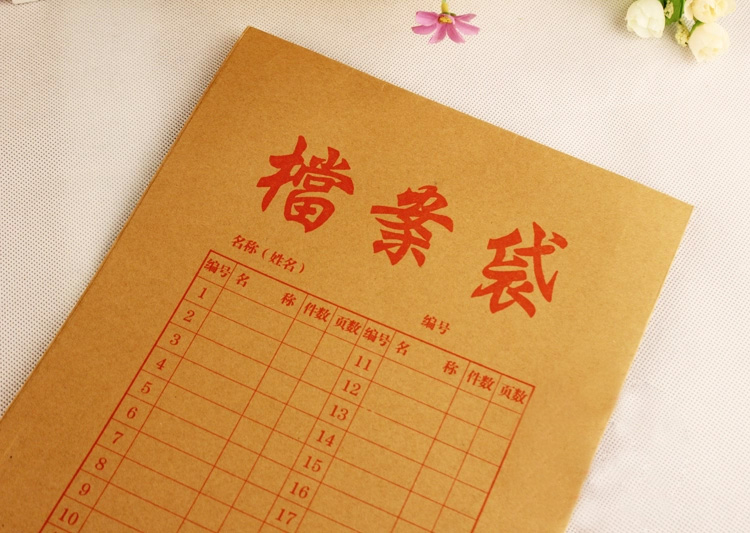 檔案袋
名称（姓名） 编号
编号 名 称 件数 页数 编号 名 称 件数 页数
1 11
2 12
3 13
4 14
5 15
6 16
7 17
8
9
10